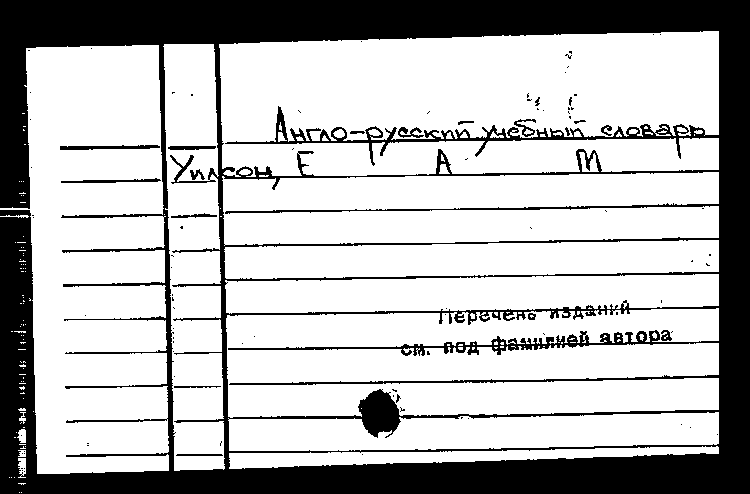 Англо-русский учебный словарь
Уилсон, Е А М
Перечень изданий
см. под фамилией автора